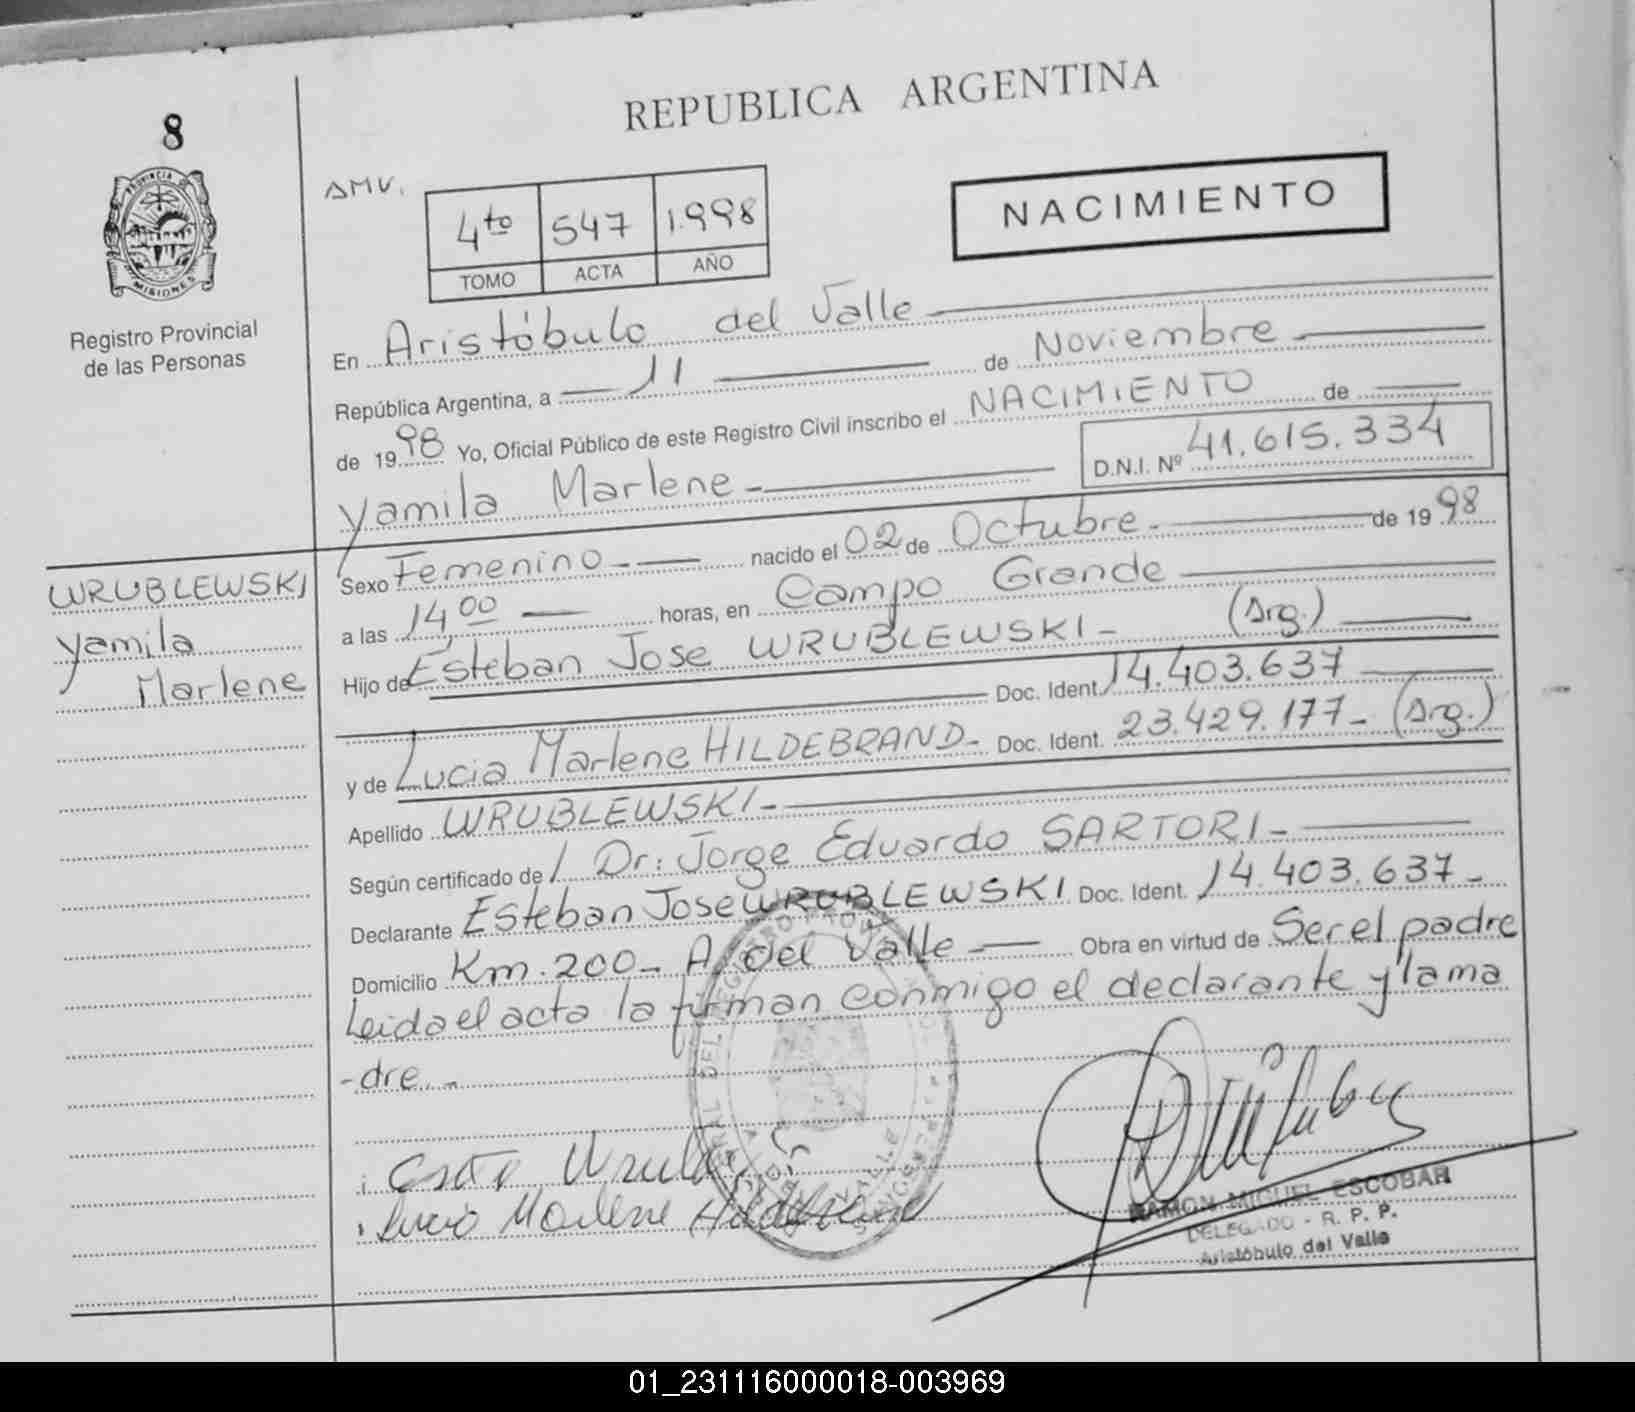 8
REPUBLICA ARGENTINA
PROVINCIA DE
MISIONES
Registro Provincial
de las Personas
AMV.
4to 547 1.998
TOMO ACTA AÑO
NACIMIENTO
En Aristóbulo del Valle
República Argentina, a 11 de Noviembre
de 1998 Yo, Oficial Público de este Registro Civil inscribo el NACIMIENTO de
Yamila Marlene- D.N.I. Nº 41.615.334
WRUBLEWSKI
Yamila
Marlene
Sexo Femenino - nacido el 02 de Octubre - de 1998
a las 14,00 horas, en Campo Grande
Hijo de Esteban Jose WRUBLEWSKI- (Arg.)
Doc. Ident. 14.403.637
y de Lucia Marlene HILDEBRAND- Doc. Ident. 23.429.177- (Arg.)
Apellido WRUBLEWSKI-
Según certificado de / Dr: Jorge Eduardo SARTORI-
Declarante Esteban Jose WRUBLEWSKI Doc. Ident. 14.403.637-
Domicilio Km. 200- A. del Valle Obra en virtud de Ser el padre
Leida el acta la firman conmigo el declarante y la ma
-dre.-
Lucia Marlene Hildebrand
RAMON MIGUEL ESCOBAR
DELEGADO - R. P. P.
Aristóbulo del Valle
01_231116000018-003969